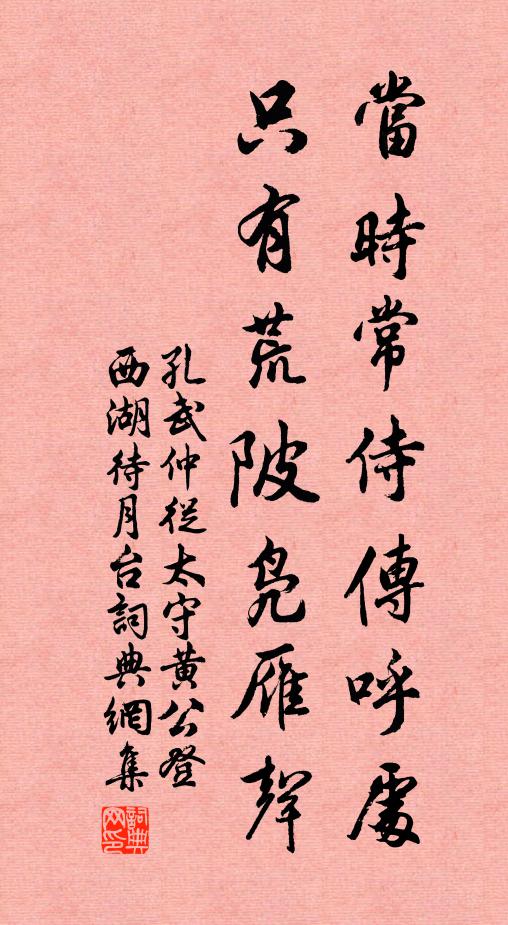 當時常侍傳呼處
只有荒陂鳧雁聲
孔武仲從太守黃公登
西湖待月台詞典網集
詞典
网印